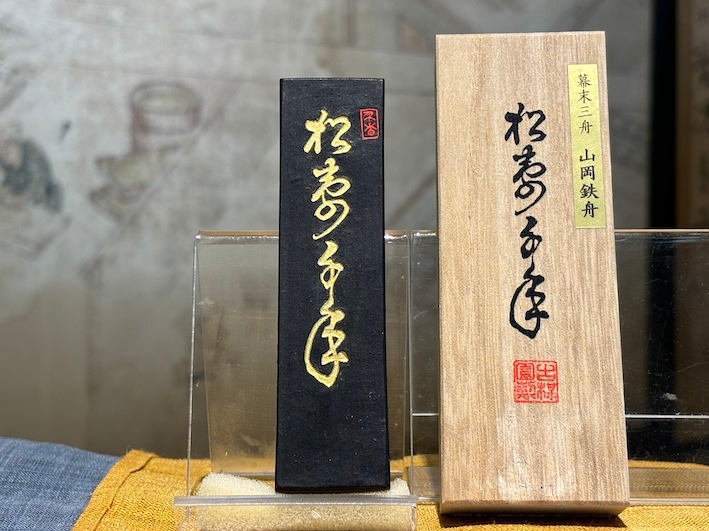 松壽千年
松壽千年
幕末三舟 山岡鉄舟